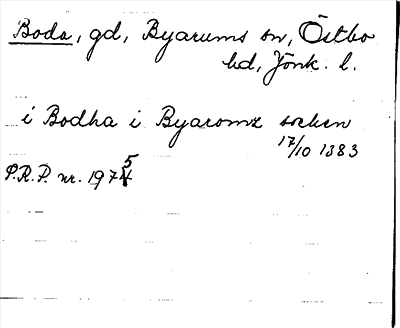 Boda, gd, Byarums sn, Östbo
hd, Jönk. l.
i Bodha i Byaromz socken
17/10 1383
P.R.P. nr. 1975